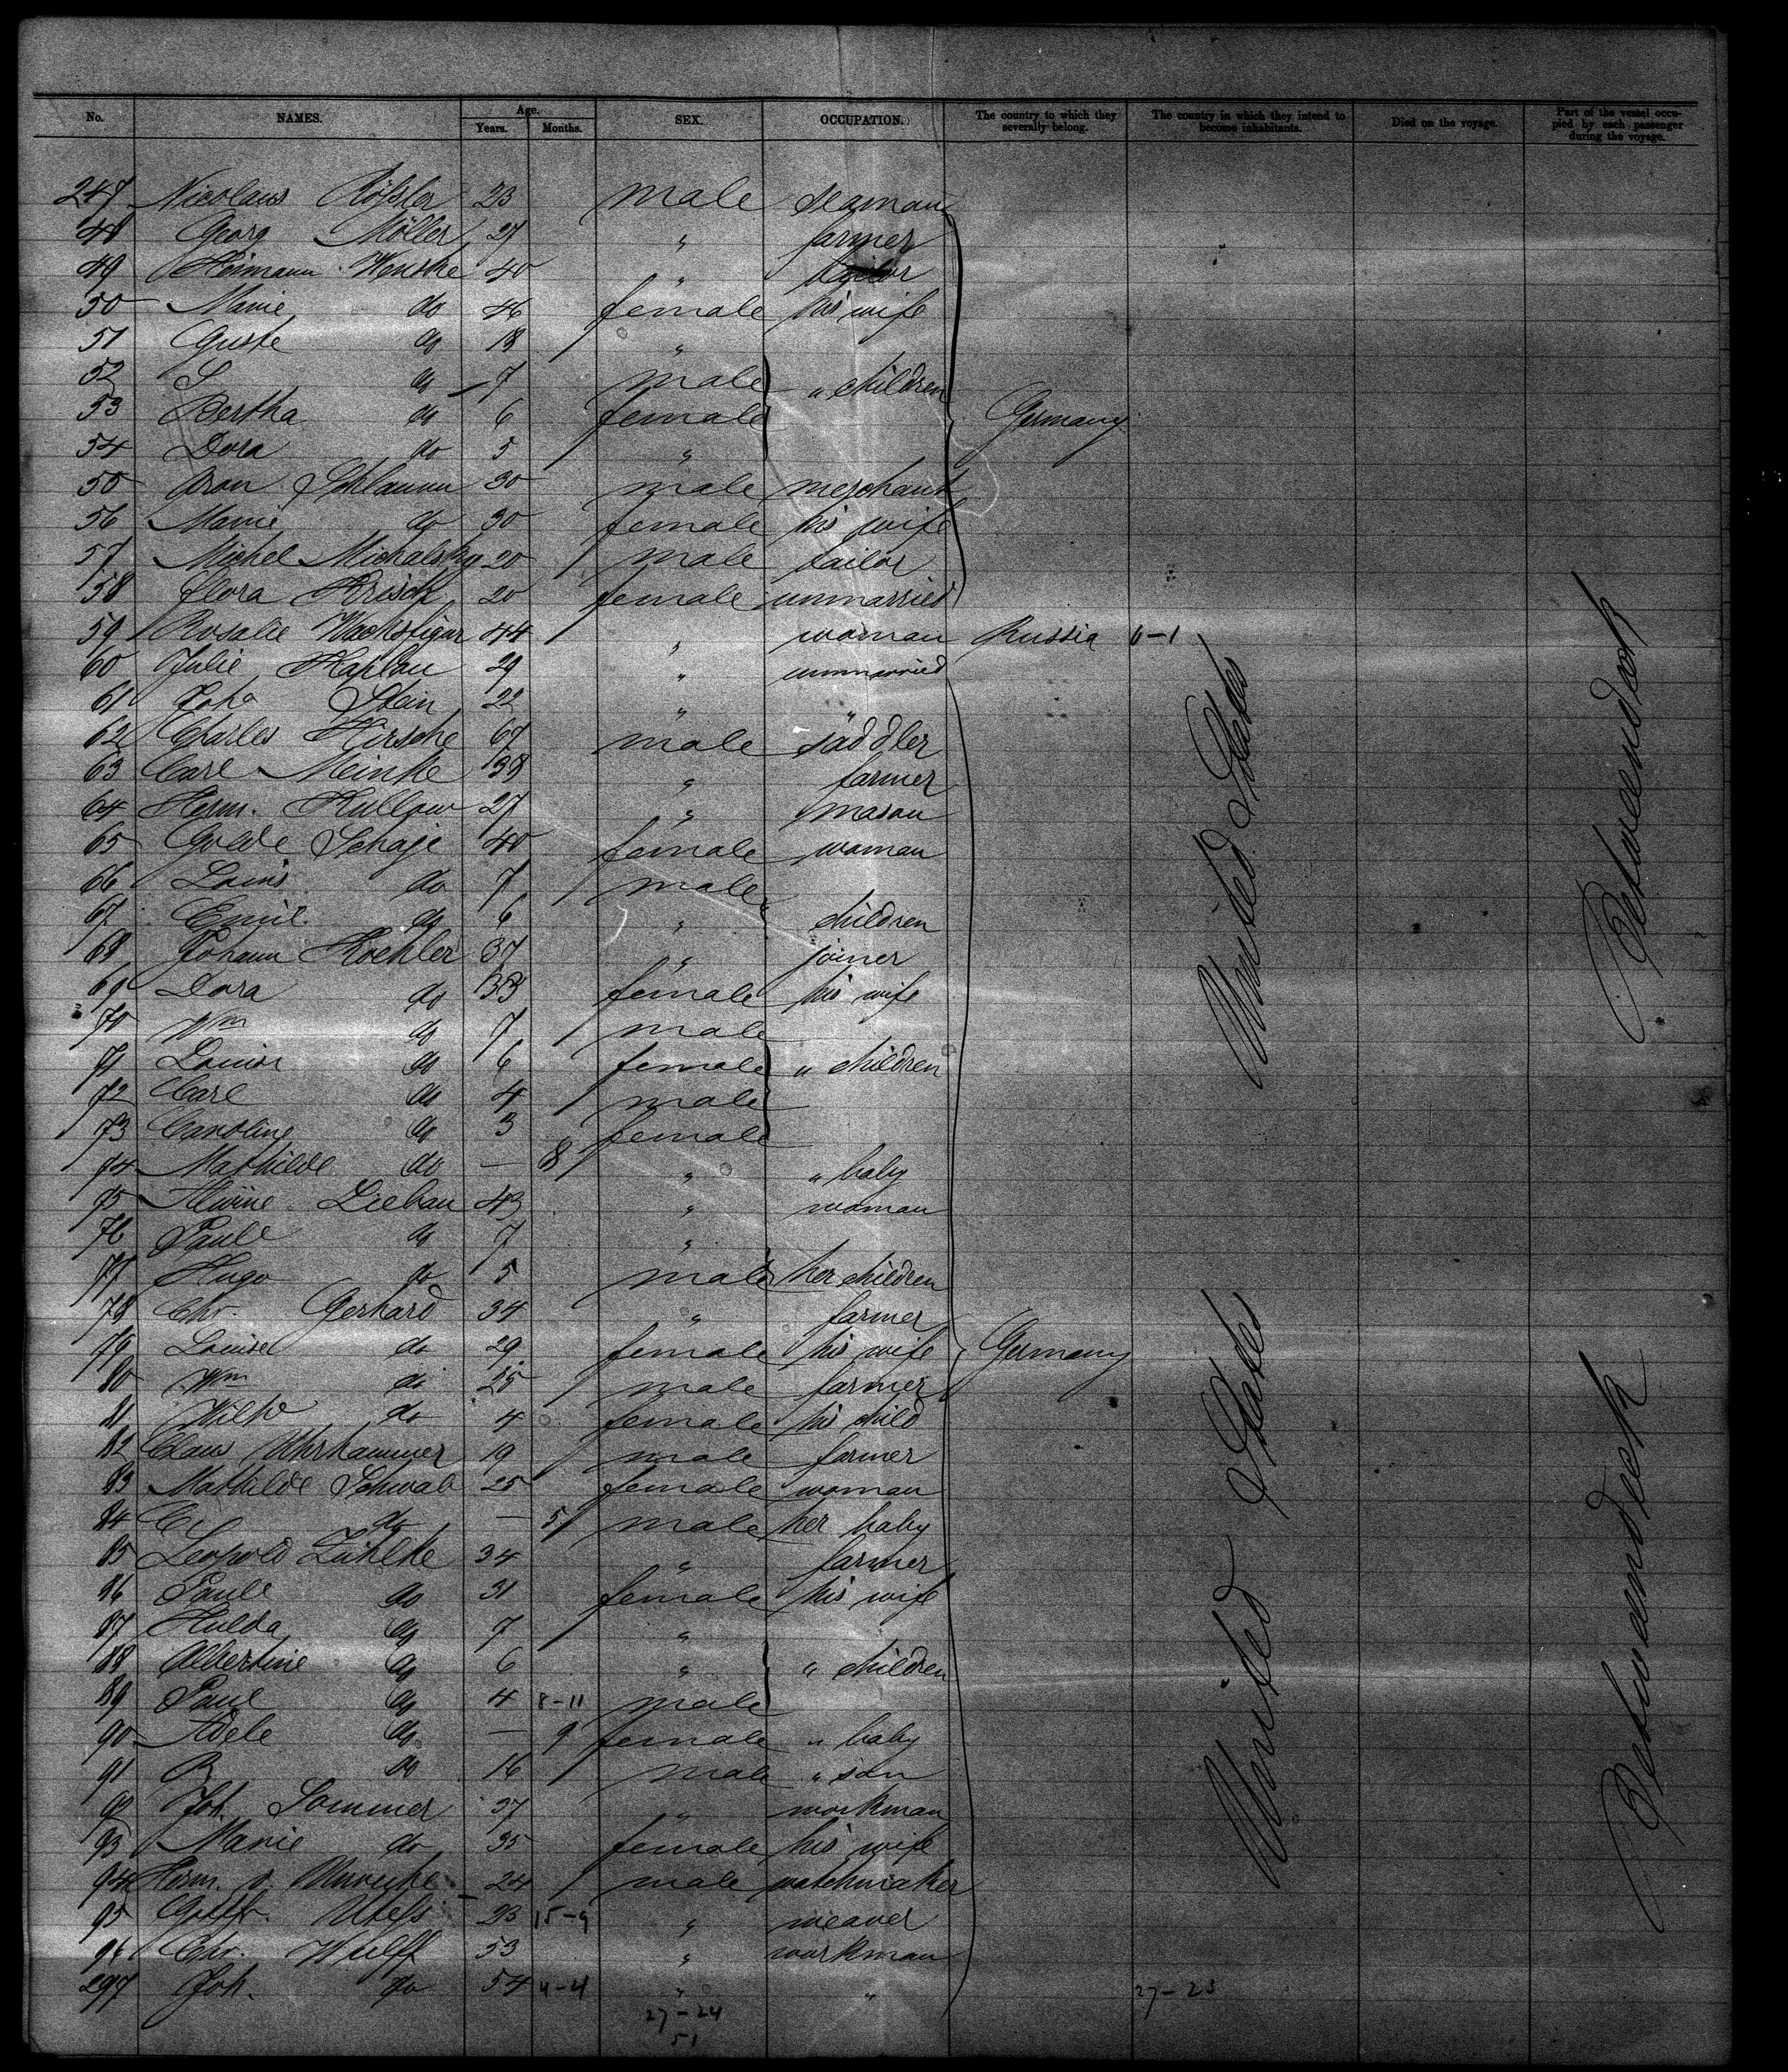 No. NAMES. Age. Years. Months. SEX. OCCUPATION. The country to which they severally belong. The country in which they intend to become inhabitants. Died on the voyage. Part of the vessel occupied by each passenger during the voyage.
247 Nicolaus Rößler 23 male seaman
48 Georg Möller 27 " farmer
49 Heimann Wenske 40 " tailor
50 Marie do 46 female his wife
51 Guste do 18 "
52 S do 7 male " children
53 Bertha do 6 female Germany
54 Dora do 5 "
55 Schlamm 30 male merchant
56 Marie do 30 female his wife
57 Michel Michalsky 20 male tailor
58 Flora Krisch 20 female unmarried
59 Rosalie 44 " woman Russia 6-1
60 Julie Kaplan 29 " unmarried
61 Stein 22 " "
62 Charles Hirsche 67 male saddler
63 Carl Meinke 38 " farmer
64 Herm. Kullow 27 " mason
65 Golde Schaje 40 female woman
66 Louis do 7 male
67 Emil do 6 " children
68 Johann Koehler 37 " joiner
69 Dora do 33 female his wife
70 Wm do 7 male
71 Louise do 6 female " children
72 Carl do 4 male
73 Caroline do 3 female
74 Mathilde do — 8 " " baby
75 Alwine Lieban 43 " woman
76 Paule do 7 "
77 Hugo do 5 male her children
78 Chr. Gerhard 34 " farmer
79 Louise do 29 female his wife Germany
80 Wm do 25 male farmer
81 Wilh do 4 female his child
82 Claus Uhrhammer 19 male farmer
83 Mathilde Schwab 25 female woman
84 C do — 5 male her baby
85 Leopold Zühlke 34 " farmer
86 Paule do 31 female his wife
87 Hulda do 7 "
88 Albertine do 6 " " children
89 Paul do 4 8-11 male
90 Adele do — 9 female " baby
91 R do 16 male " son
92 Joh. Sommer 37 " workman
93 Marie do 35 female his wife
94 Herm. v. 24 male watchmaker
95 Gottfr. 23 15-9 " weaver
96 Chr. Wulff 53 " workman
297 Joh. do 54 4-4 " " 27-23
27-24
51
United States
Betweendeck
United States
Betweendeck